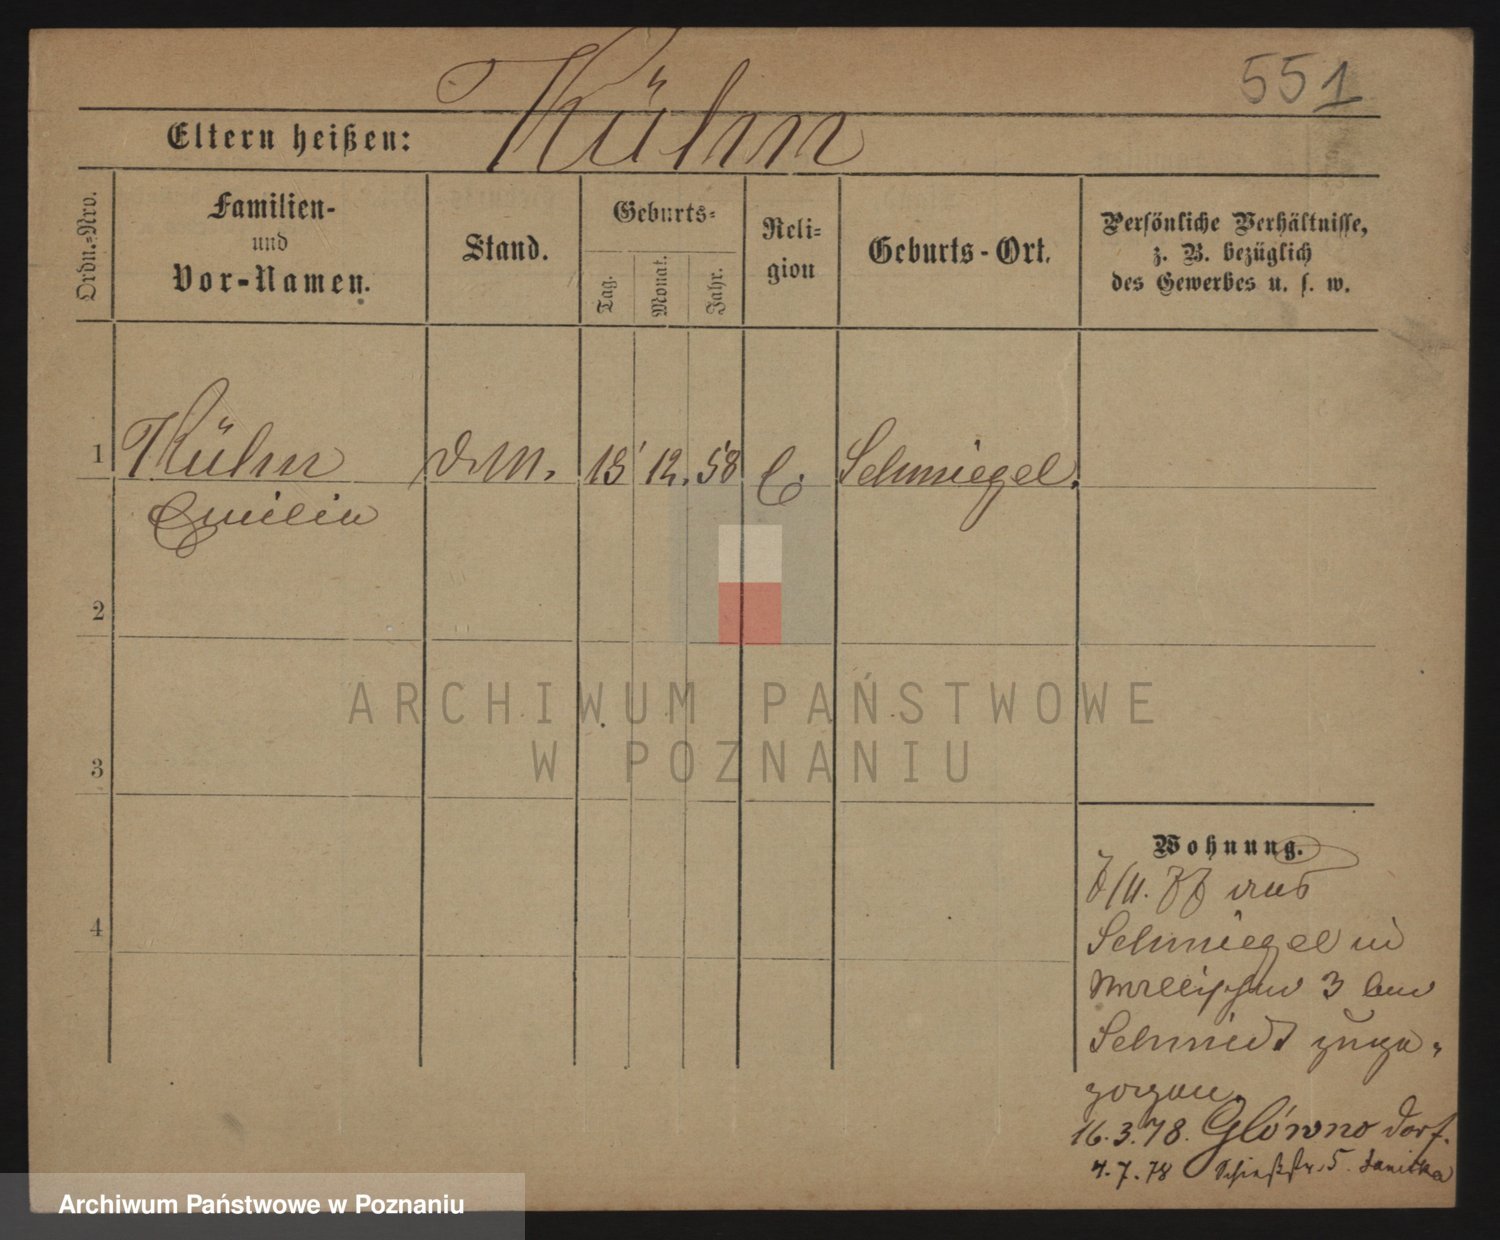 551
Kühn
Eltern heißen:
Ordn.=Nro.
Familien-
und
Vor-Namen.
Stand.
Geburts=
Tag.
Monat.
Jahr.
Reli=
gion
Geburts-Ort.
Persönliche Verhältnisse,
z. B. bezüglich
des Gewerbes u. s. w.
1
Kühn
Emilie
d. M.
15
12.
58
Schmiegel.
2
3
4
ARCHIWUM PAŃSTWOWE
W POZNANIU
Wohnung.
aus
Schmiegel in
Wallischei 3 bei
Schmidt zuge-
zogen.
16.3.78. Glówno dorf.
4.7.78 Schießstr. 5.
Archiwum Państwowe w Poznaniu